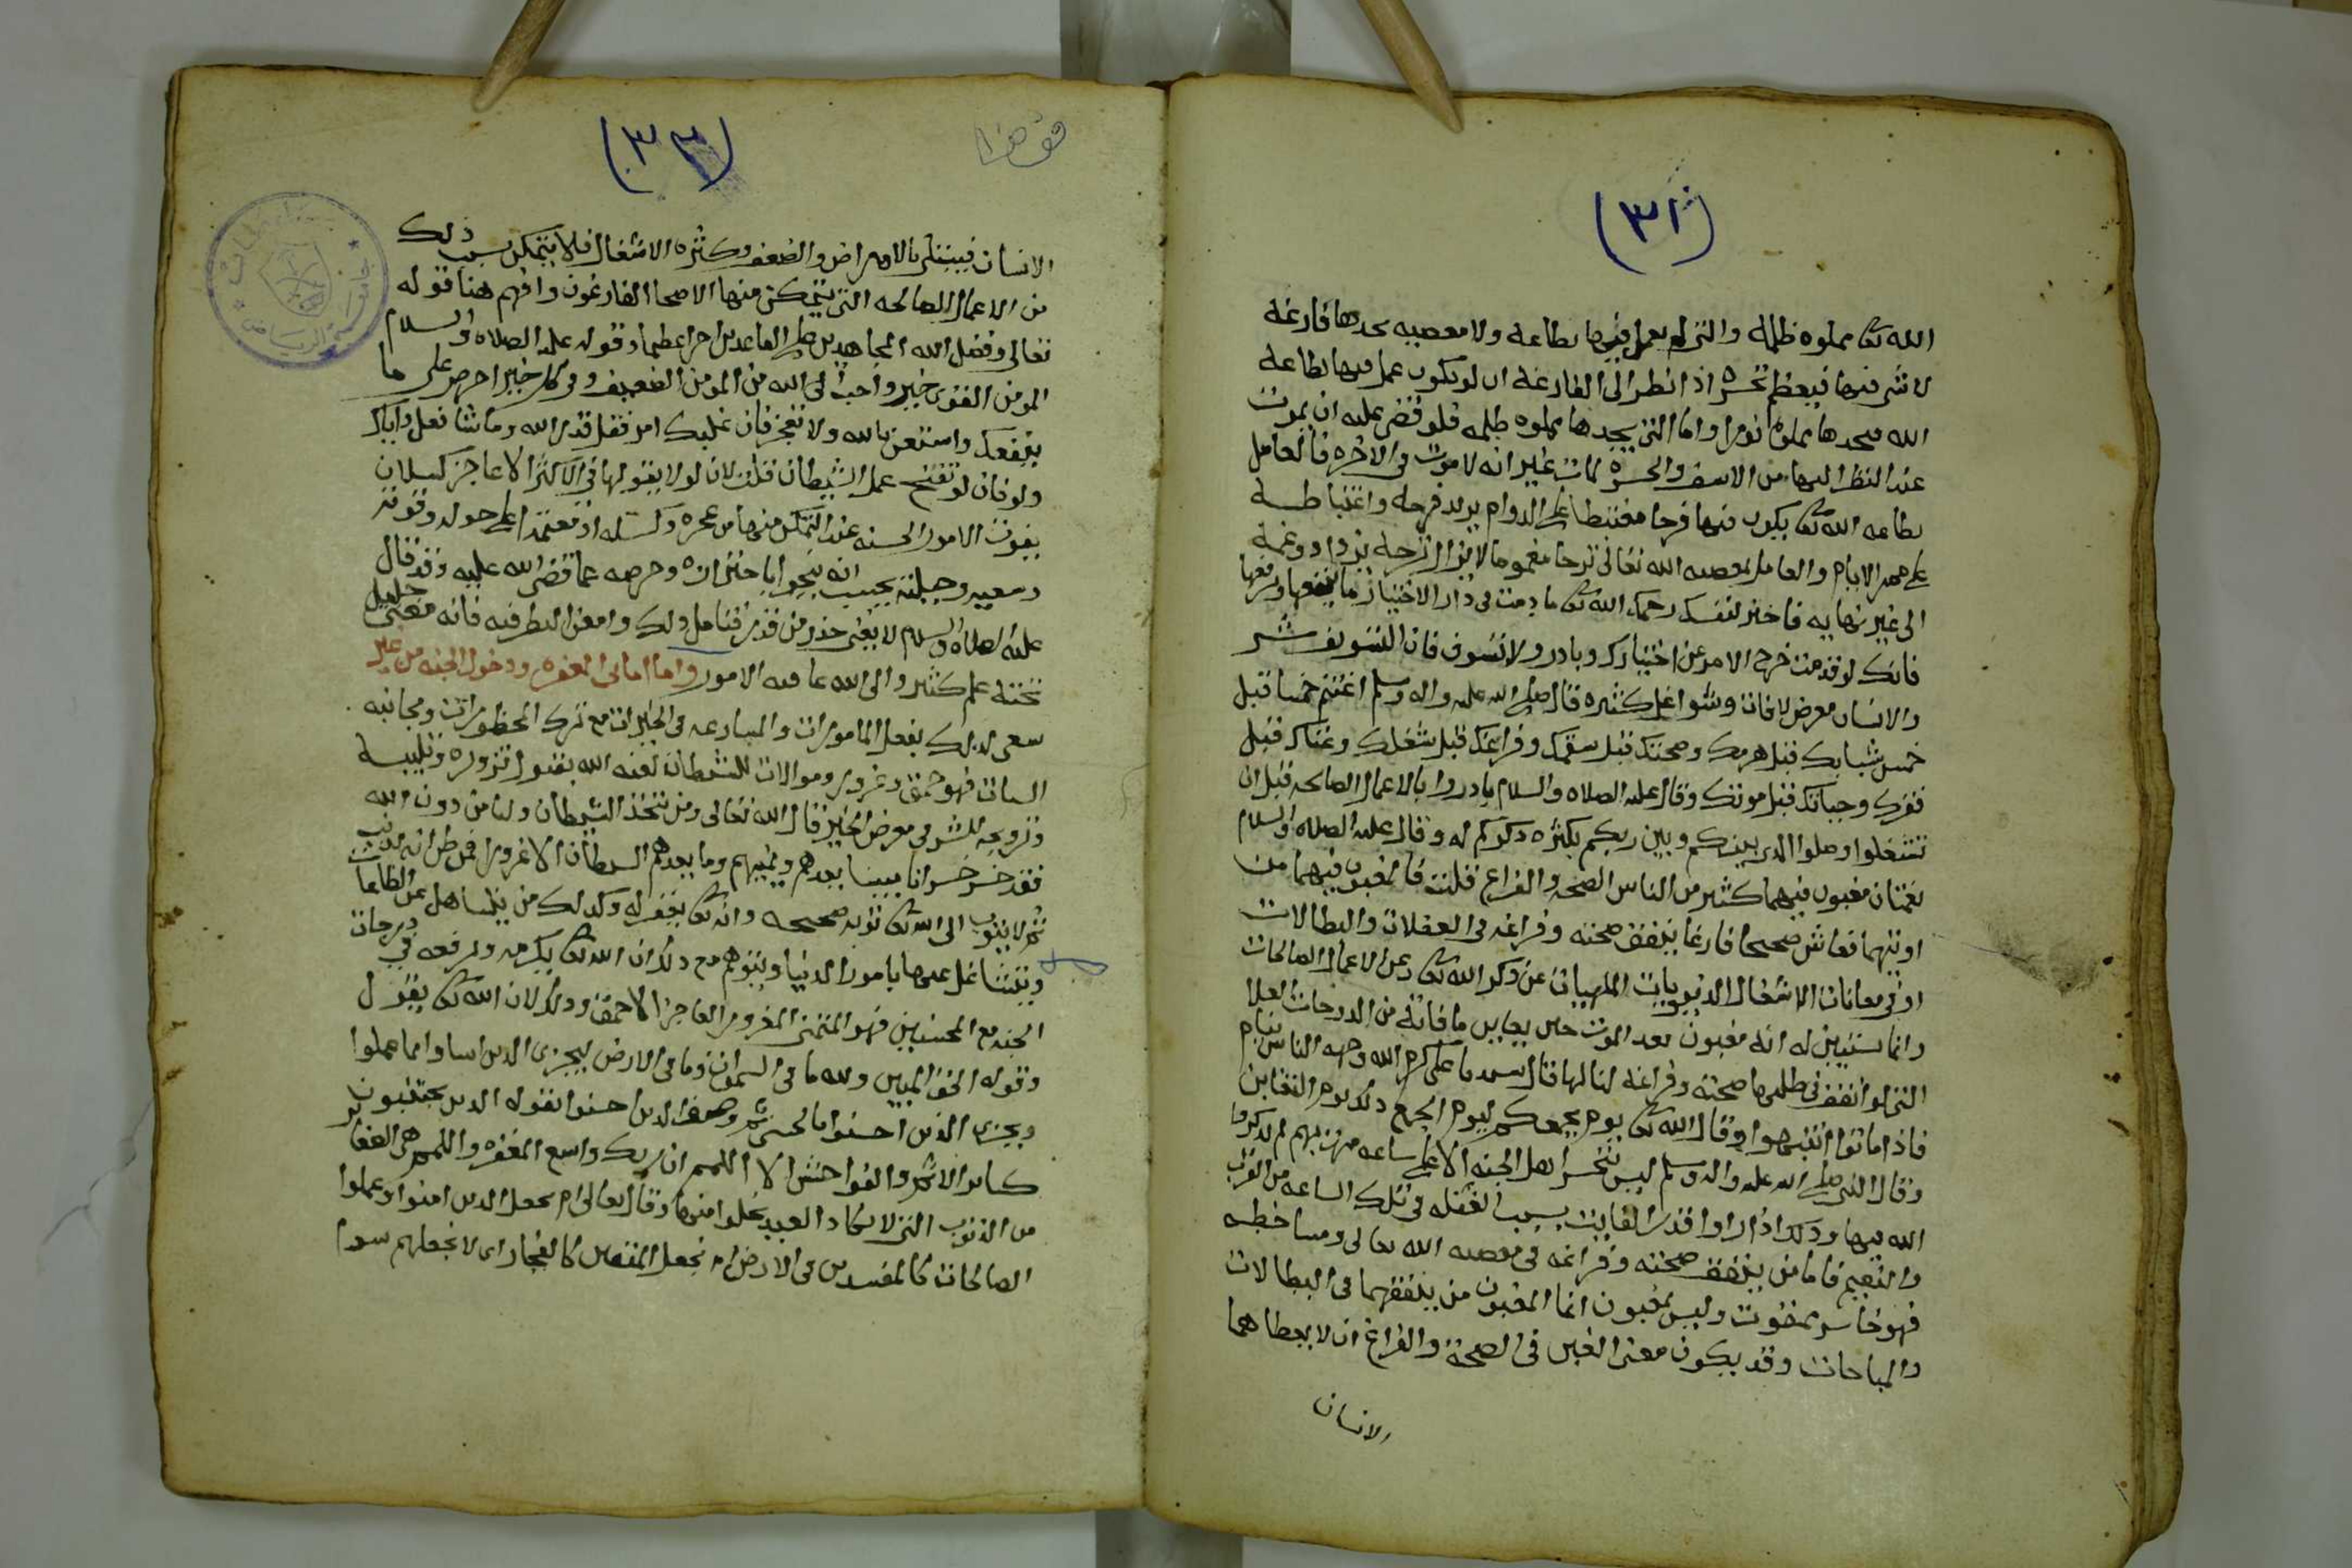 (٣١)
الله تعالى مملوه ظلمة والتي لم يعمل فيها بطاعة ولا معصيه يجدها فارغة
لا شي فيها فيعظم تحسره اذا نظر الى الفارغة ان لو يكون عمل فيها بطاعة
الله فيجدها مملوة نورا واما التي يجدها مملوه ظلمه فلو قضي عليه ان يموت
عند النظر اليها من الاسف والحسرة لمات غير انه لا موت في الاخرة فالعامل
بطاعه الله تعالى يكون فيها فرحا مغتبطا على الدوام يزيد فرحه واغتباطه
على ممر الايام والعامل بمعصيه الله تعالى ترحا مغموما لا يزال ترحه يزداد وغمه
الى غير نهايه فاختر لنفسك رحمك الله تعالى ما دمت في دار الاختيار ما ينفعها ويرفعها
فانك لو قدمت خرج الامر عن اختيارك وبادر ولا تسوف فان التسويف شر
والانسان معرض لافات وشواغل كثيرة قال صلى الله عليه واله وسلم اغتنم خمسا قبل
خمس شبابك قبل هرمك وصحتك قبل سقمك وفراغك قبل شغلك وغناك قبل
فقرك وحياتك قبل موتك وقال عليه الصلاه والسلام بادروا بالاعمال الصالحه قبل ان
تشغلوا وصلوا الذي بينكم وبين ربكم بكثره ذكركم له وقال عليه الصلاه والسلام
نعمتان مغبون فيهما كثير من الناس الصحه والفراغ قلت فالمغبون فيهما من
اوتيهما فعاش صحيحا فارغا ينفق صحته وفراغه في الغفلات والبطالات
او في معانات الاشغال الدنيويات الملهيات عن ذكر الله تعالى وعن الاعمال الصالحات
وانما يستبين له انه مغبون بعد الموت حين يعاين ما فاته من الدرجات العلا
التي لو انفق في طلبها صحته وفراغه لنالها قال سيدنا علي كرم الله وجهه الناس نيام
فاذا ماتوا انتبهوا وقال الله تعالى يوم يجمعكم ليوم الجمع ذلك يوم التغابن
وقال النبي صلى الله عليه واله وسلم ليس يتحسر اهل الجنه الا على ساعه مرت بهم لم يذكروا
الله فيها وذلك اذا راوا قدر الفايت بسبب الغفله في تلك الساعه من القرب
والنعيم فاما من ينفق صحته وفراغه في معصيه الله تعالى ومساخطه
فهو خاسر ممقوت وليس بمغبون انما المغبون من ينفقهما في البطالات
والمباحات وقد يكون معنى الغبن في الصحة والفراغ ان لا يعطاهما
الانسان
(٣٢)
الانسان فيبتلى بالامراض والضعف وكثره الاشغال فلا يتمكن بسبب ذلك
من الاعمال الصالحه التي يتمكن منها الاصحا الفارغون وافهم هنا قوله
تعالى وفضل الله المجاهدين على القاعدين اجرا عظيما وقوله عليه الصلاه والسلام
المومن القوي خير واحب الى الله من المومن الضعيف وفي كل خير احرص على ما
ينفعك واستعن بالله ولا تعجز فان غلبك امر فقل قدر الله وما شا فعل واياك
ولو فان لو تفتح عمل الشيطان قلت لان لو لا يقولها في الاكثر الا عاجز كسلان
يفوت الامور الحسنه عند التمكن منها من عجزه وكسله او معتمدا على حوله وقوته
وسعيه وحيلته بحيث انه ينجوا باحترازه وحرصه عما قضى الله عليه وقد قال
عليه الصلاة والسلام لا يغني حذر من قدر فتامل ذلك وامعن النظر فيه فانه معنى جليل
تحته علم كثير والى الله عاقبه الامور واما اماني المغفره ودخول الجنه من غير
سعي لذلك بفعل المامورات والمسارعه في الخيرات مع ترك المحظورات ومجانبه
السيات فهو حمق وغرور وموالات للشيطان لعنه الله بقبول تزويره وتلبيسه
وترويجه للشر في معرض الخير قال الله تعالى ومن يتخذ الشيطان وليا من دون الله
فقد خسر خسرانا مبينا يعدهم ويمنيهم وما يعدهم الشيطان الا غرورا فمن ظن انه يذنب
ثم لا يتوب الى الله تعالى توبه صحيحه وانه تعالى يغفر له وكذلك من يتساهل عن الطاعات
ويتشاغل عنها بامور الدنيا ويتوهم مع ذلك ان الله تعالى يكرمه ويرفعه في درجات
الجنه مع المحسنين فهو المتمني المغرور العاجز الاحمق وذلك لان الله تعالى يقول
وقوله الحق المبين ولله ما في السموات وما في الارض ليجزي الذين اساوا بما عملوا
ويجزي الذين احسنوا بالحسنى ثم وصف الذين احسنوا بقوله الذين يجتنبون
كباير الاثم والفواحش الا اللمم ان ربك واسع المغفره واللمم هي الصغاير
من الذنوب التي لا يكاد العبد يخلوا منها وقال تعالى ام نجعل الذين امنوا وعملوا
الصالحات كالمفسدين في الارض ام نجعل المتقين كالفجار اي لا نجعلهم سوا